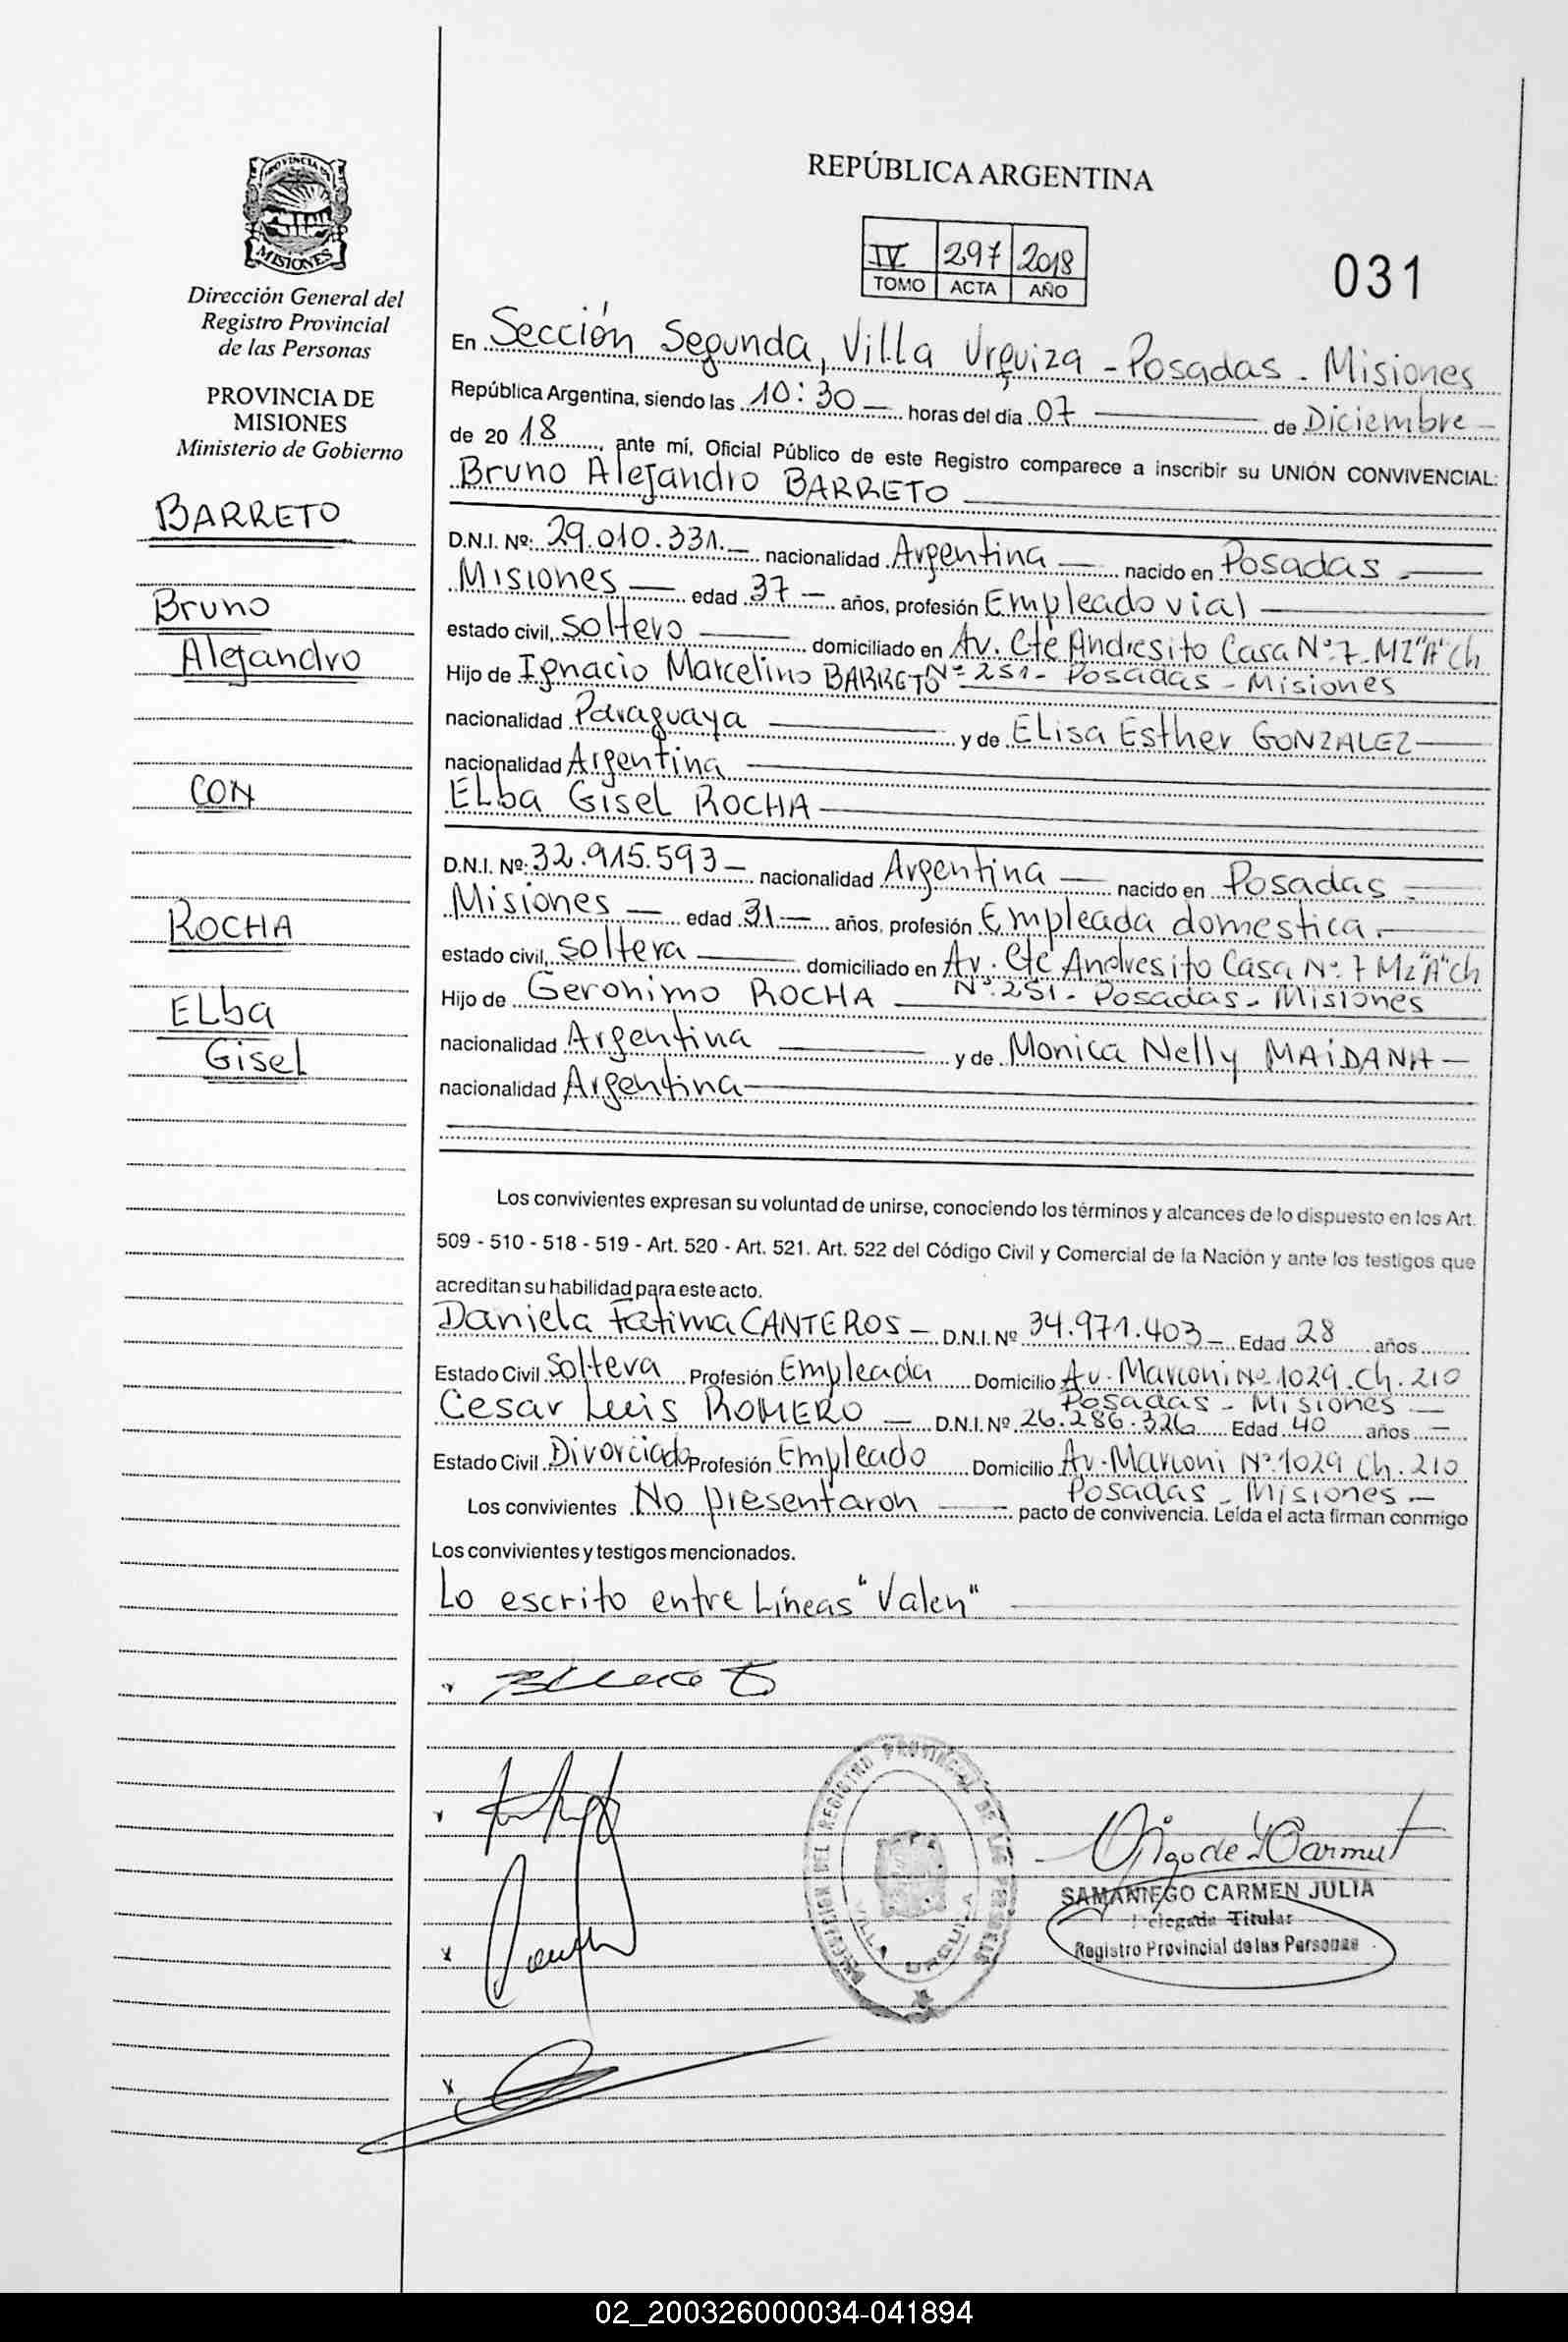 PROVINCIA DE
MISIONES
Dirección General del
Registro Provincial
de las Personas
PROVINCIA DE
MISIONES
Ministerio de Gobierno
BARRETO
Bruno
Alejandro
CON
ROCHA
ELba
Gisel
REPÚBLICA ARGENTINA
IV 297 2018
TOMO ACTA AÑO
031
En Sección Segunda, Villa Urquiza - Posadas - Misiones
República Argentina, siendo las 10:30 — horas del día 07 — de Diciembre -
de 20 18, ante mí, Oficial Público de este Registro comparece a inscribir su UNIÓN CONVIVENCIAL:
Bruno Alejandro BARRETO
D.N.I. Nº: 29.010.331.— nacionalidad Argentina — nacido en Posadas —
Misiones — edad 37 — años, profesión Empleado vial —
estado civil, soltero — domiciliado en Av. Cte Andresito Casa Nº 7 - MZ "A" Ch
Hijo de Ignacio Marcelino BARRETO Nº 251 - Posadas - Misiones
nacionalidad Paraguaya — y de ELisa Esther GONZALEZ —
nacionalidad Argentina —
ELba Gisel ROCHA —
D.N.I. Nº: 32.915.593 — nacionalidad Argentina — nacido en Posadas —
Misiones — edad 31 — años, profesión Empleada domestica. —
estado civil, soltera — domiciliado en Av. Cte Andresito Casa Nº 7 Mz "A" Ch
Hijo de Geronimo ROCHA — Nº 251 - Posadas - Misiones
nacionalidad Argentina — y de Monica Nelly MAIDANA —
nacionalidad Argentina —
Los convivientes expresan su voluntad de unirse, conociendo los términos y alcances de lo dispuesto en los Art.
509 - 510 - 518 - 519 - Art. 520 - Art. 521. Art. 522 del Código Civil y Comercial de la Nación y ante los testigos que
acreditan su habilidad para este acto.
Daniela Fatima CANTEROS — D.N.I. Nº 34.971.403 — Edad 28 años
Estado Civil Soltera Profesión Empleada Domicilio Av. Marconi Nº 1029 Ch. 210
Posadas - Misiones —
Cesar Luis ROMERO — D.N.I. Nº 26.286.326 Edad 40 años —
Estado Civil Divorciado Profesión Empleado Domicilio Av. Marconi Nº 1029 Ch. 210
Posadas - Misiones —
Los convivientes No presentaron — pacto de convivencia. Leída el acta firman conmigo
Los convivientes y testigos mencionados.
Lo escrito entre Líneas "Valen"
DIRECCIÓN DEL REGISTRO PROVINCIAL DE LAS PERSONAS
VILLA URQUIZA
SAMANIEGO CARMEN JULIA
Delegada Titular
Registro Provincial de las Personas
02_200326000034-041894